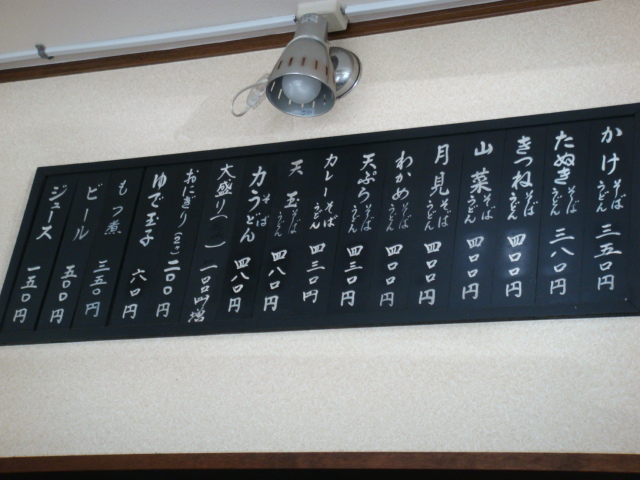 かけそばうどん 三五〇円
たぬきそばうどん 三八〇円
きつねそばうどん 四〇〇円
山菜そばうどん 四〇〇円
月見そばうどん 四〇〇円
わかめそばうどん 四〇〇円
天ぷらそばうどん 四三〇円
カレーそばうどん 四三〇円
天玉そばうどん 四八〇円
力そばうどん 四八〇円
大盛り 一〇〇円増
おにぎり(2コ) 二〇〇円
ゆで玉子 六〇円
もつ煮 三五〇円
ビール 五〇〇円
ジュース 一五〇円